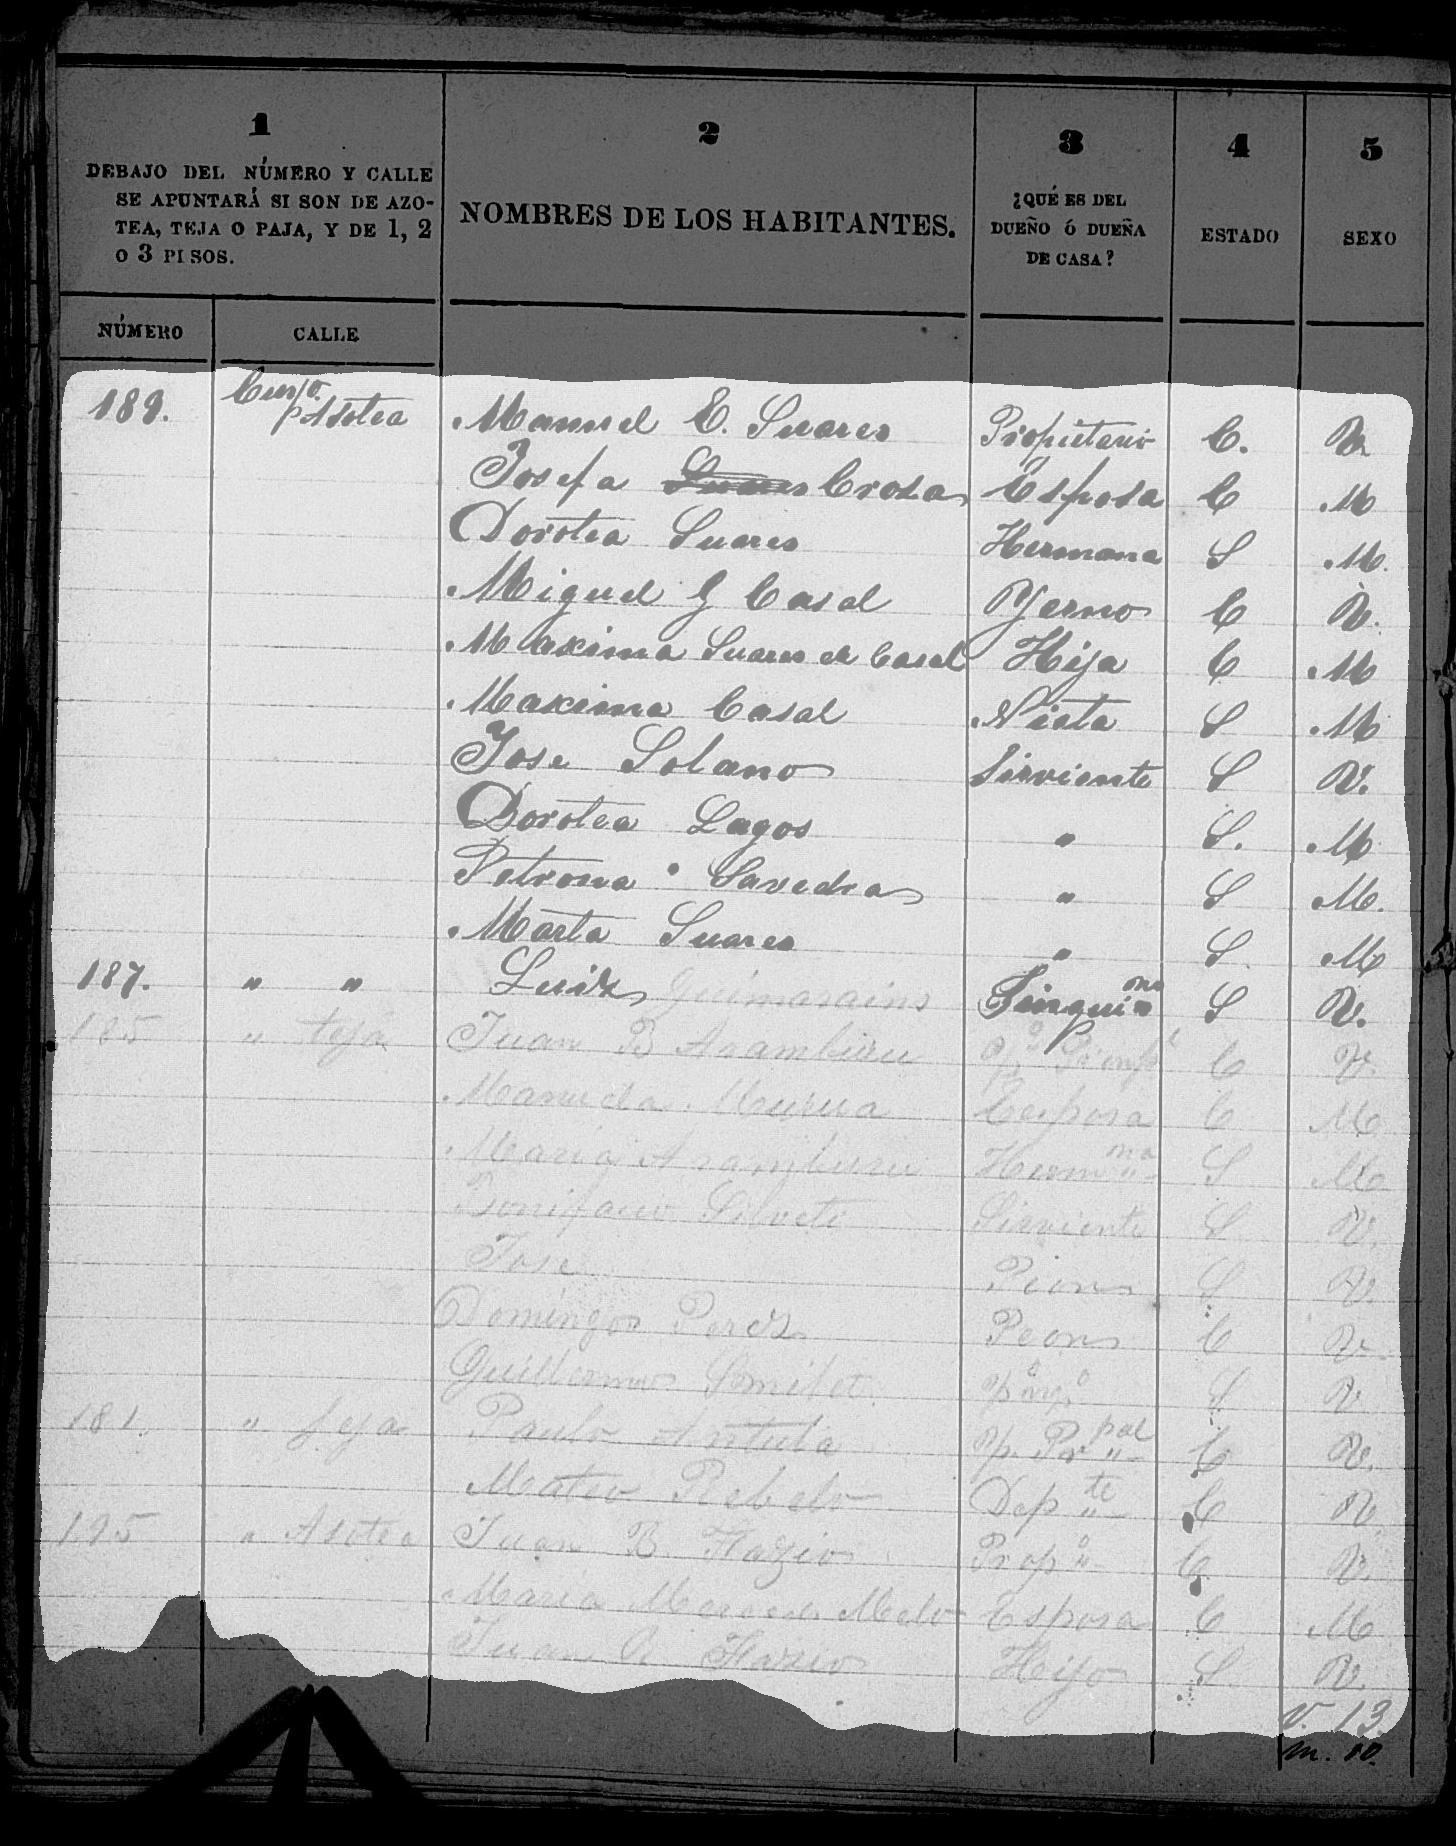 1 2 3 4 5
DEBAJO DEL NÚMERO Y CALLE
SE APUNTARÁ SI SON DE AZO-
TEA, TEJA O PAJA, Y DE 1, 2
O 3 PISOS.
NOMBRES DE LOS HABITANTES.
¿QUÉ ES DEL
DUEÑO Ó DUEÑA
DE CASA?
ESTADO
SEXO
NÚMERO CALLE
189. Asotea Manuel E. Suares Propietario C. V.
Josefa Crosa Esposa C M
Dorotea Suares Hermana S M.
Miguel G Casal Yerno C V.
Maxima Suares de Casal Hija C M
Maxima Casal Nieta S M
Jose Solano Sirviente S V.
Dorotea Lagos " S. M
Petrona Savedra " S M.
Marta Suares " S M
187. " " Luis Guimarains S V.
185 " teja Juan B Aramburu C V.
Manuela Murua Esposa C M
Maria Aramburu Hermna S M
Bonifacio Silveti Sirviente S V.
Jose Pion S V.
Domingo Peres Peon C V.
Guillermo S V
181. " Paulo C V.
Mateo Rebelo Depte C V.
195 " Asotea Juan B. Fazio Propo C V.
Maria Merced Melo Esposa C M
Juan Fazio Hijo S. V.
V. 13.
m. 10.